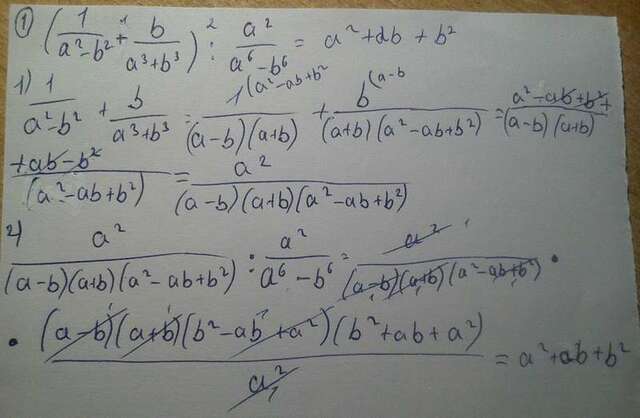 ① (1/(a²-b²) +¹ b/(a³+b³)) :² a²/(a⁶-b⁶) = a²+ab+b²
1) 1/(a²-b²) + b/(a³+b³) = 1(a²-ab+b²/((a-b)(a+b)) + b(a-b/((a+b)(a²-ab+b²)) = (a²-ab+b²+/((a-b)(a+b)
+ab-b²/(a²-ab+b²) = a²/((a-b)(a+b)(a²-ab+b²))
2) a²/((a-b)(a+b)(a²-ab+b²)) : a²/(a⁶-b⁶) = a²/((a-b)(a+b)(a²-ab+b²)) ·
· (a-b)(a+b)(b²-ab+a²)(b²+ab+a²)/a² = a²+ab+b²